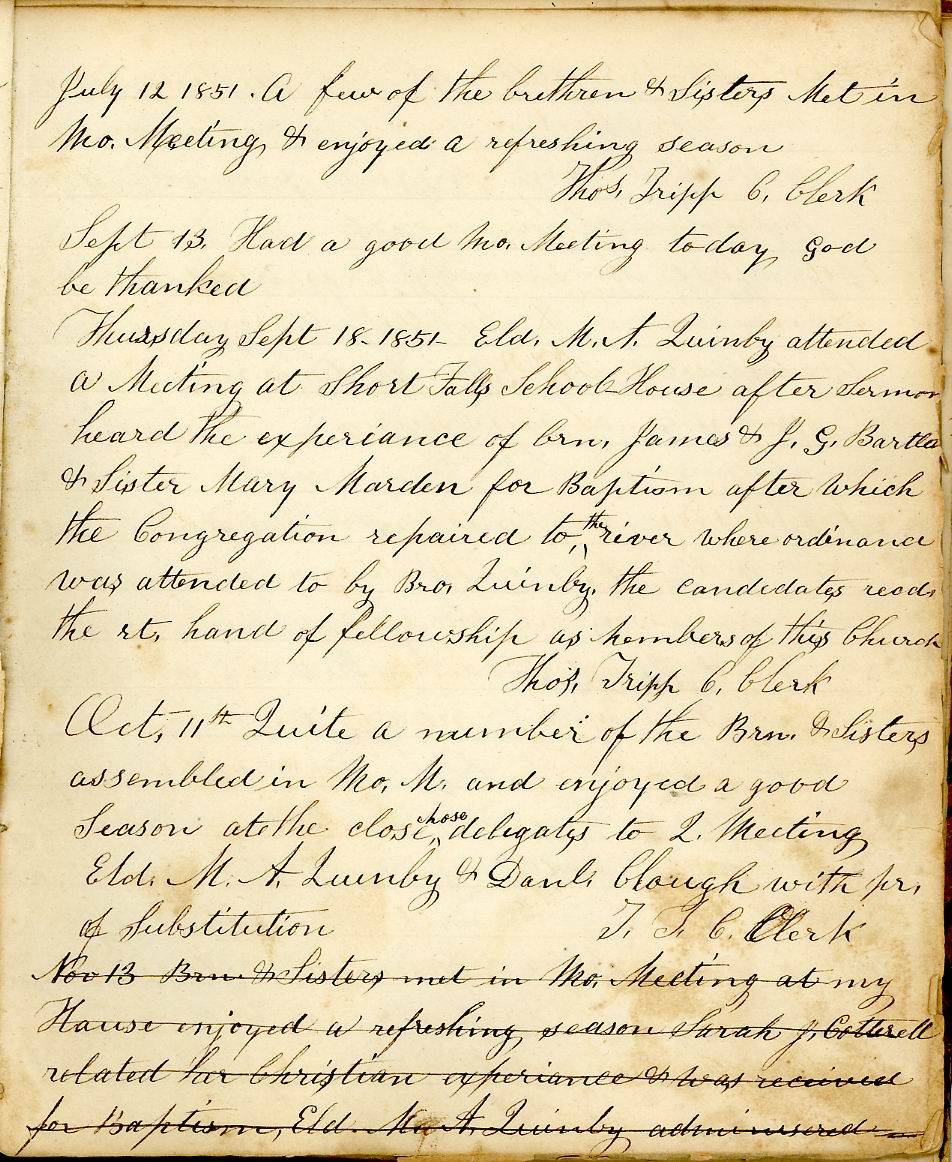 July 12 1851. A few of the brethren & Sisters Met in
Mo. Meeting & enjoyed a refreshing season
Thos. Tripp C. Clerk
Sept 13. Had a good Mo. Meeting today God
be thanked
Thursday Sept 18 - 1851 - Eld. M. A. Quinby attended
a Meeting at Short Falls School House after Sermon
heard the experiance of brn. James & J. G. Bartle
& Sister Mary Marden for Baptism after which
the Congregation repaired to, the river where ordinance
was attended to by Bro. Quinby. the candidates recd.
the rt. hand of fellowship as members of this Church
Thos. Tripp C. Clerk
Oct, 11th Quite a number of the Brn. & Sisters
assembled in Mo. M. and enjoyed a good
Season at the close, chose delegates to Q. Meeting
Eld. M. A. Quinby & Danl. Clough with pr.
of Substitution T. T. C. Clerk
Nov 13 Brn & Sisters met in Mo. Meeting at my
House enjoyed a refreshing season Sarah J. Cotterell
related her Christian experiance & was received
for Baptism, Eld. M. A. Quinby adminisered